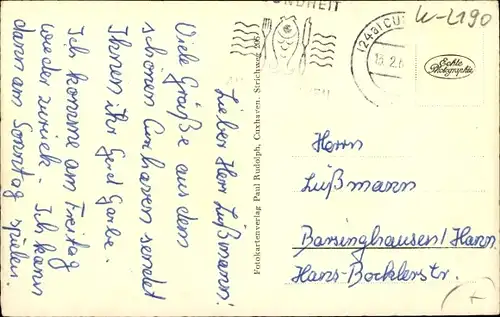 Lieber Herr Lüßmann!
Viele Grüße aus dem
schönen Cuxhaven sendet
Ihnen ihr Gerd Garbe.
Ich komme am Freitag
wieder zurück. Ich kann
dann am Sonntag spielen.
Fotokartenverlag Paul Rudolph, Cuxhaven, Strichweg 20b
NDHEIT
(24a) CU
18.2.6
W-L190
Echte
Photographie
Herrn
Lüßmann
Barsinghausen/Hann.
Hans-Böcklerstr.